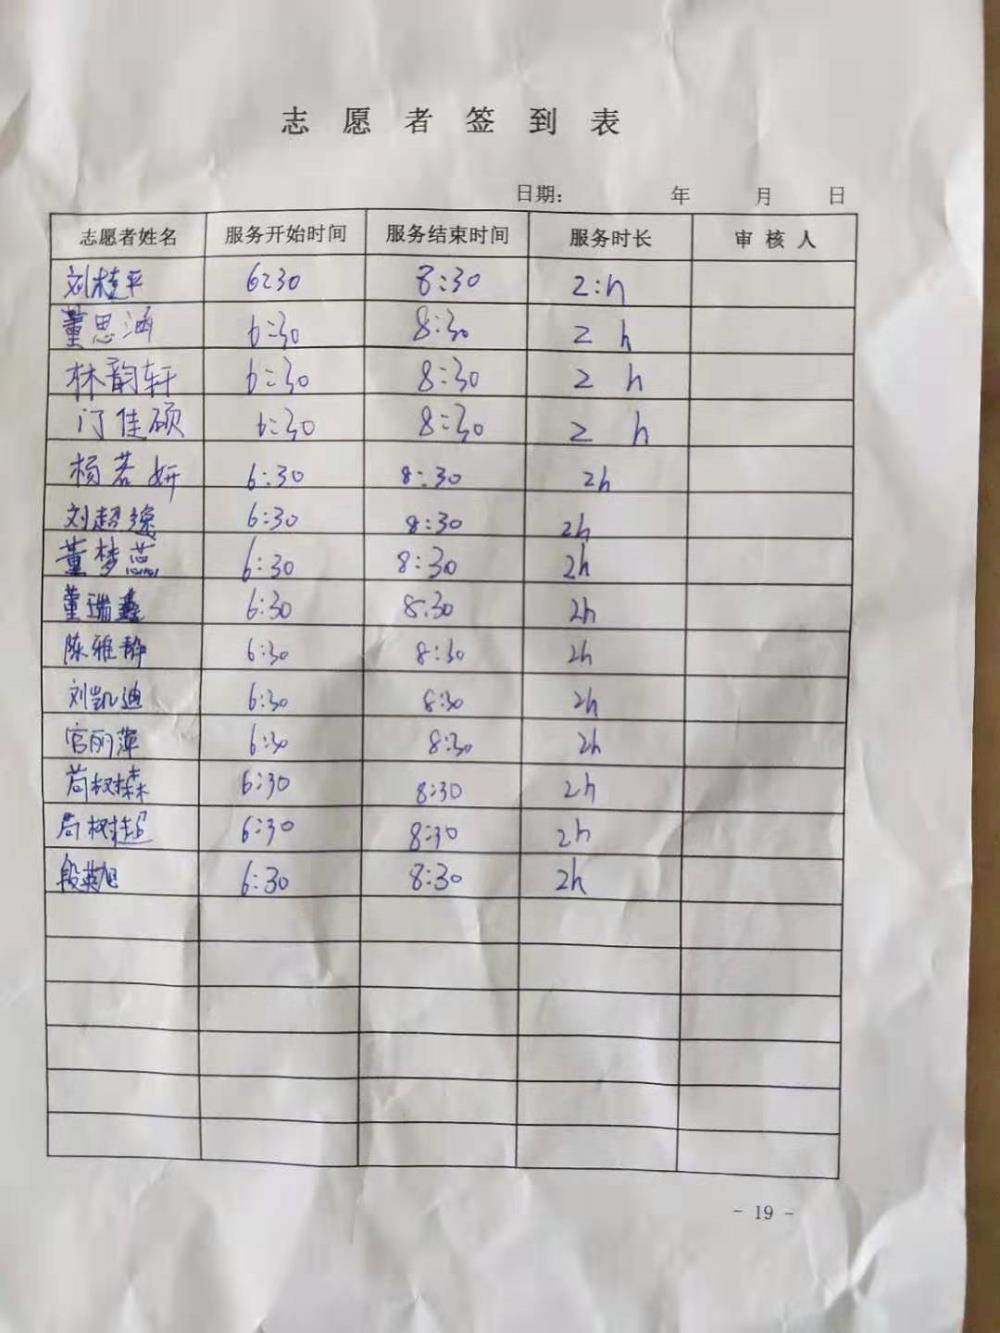 志愿者签到表
日期： 年 月 日
志愿者姓名 服务开始时间 服务结束时间 服务时长 审核人
刘桂平 6:30 8:30 2:h
董思涵 6:30 8:30 2 h
林韵轩 6:30 8:30 2 h
门佳硕 6:30 8:30 2 h
杨若妍 6:30 8:30 2h
刘超逸 6:30 8:30 2h
董梦蕊 6:30 8:30 2h
董瑞鑫 6:30 8:30 2h
陈雅静 6:30 8:30 2h
刘凯迪 6:30 8:30 2h
宫丽萍 6:30 8:30 2h
6:30 8:30 2h
6:30 8:30 2h
段英旭 6:30 8:30 2h
- 19 -